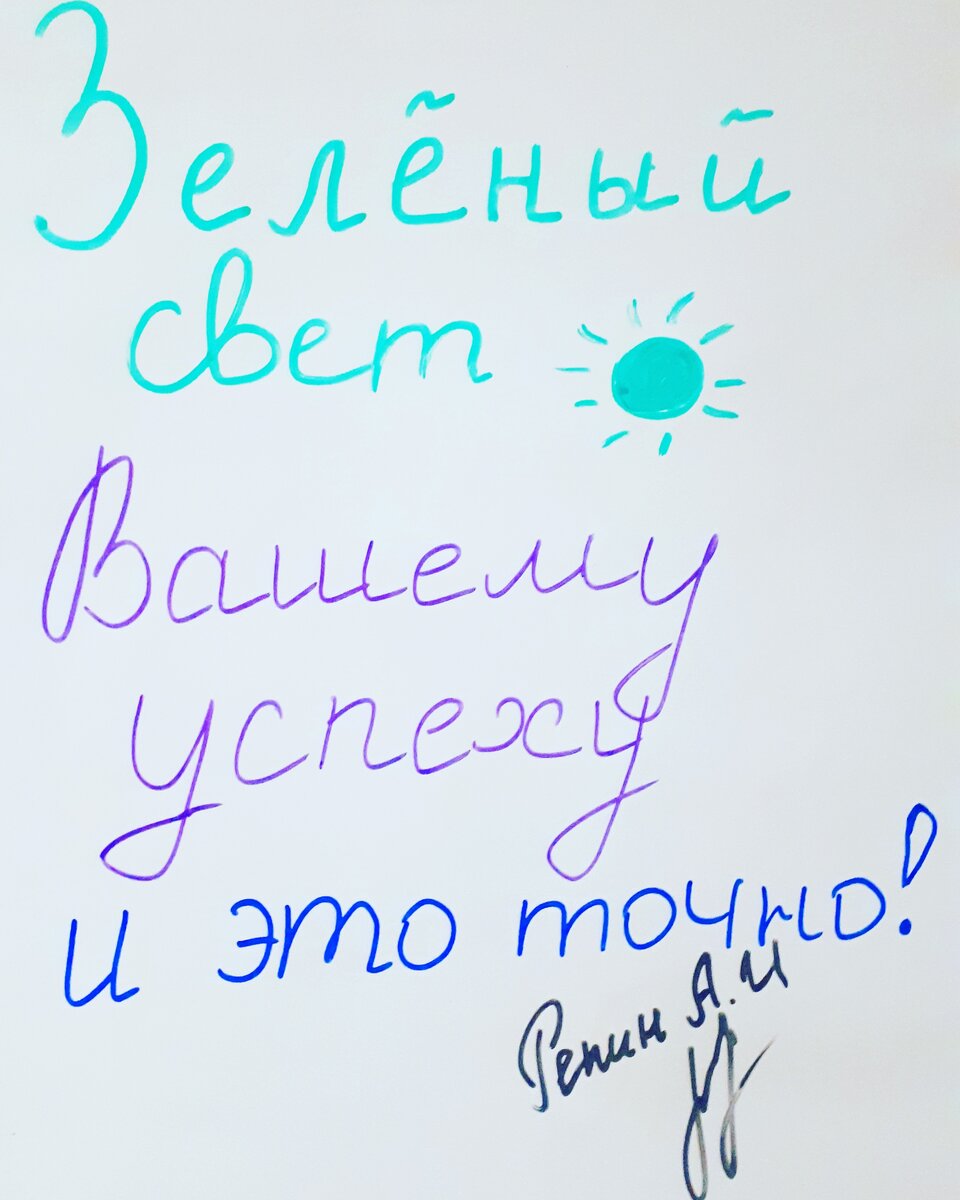 Зелёный
свет
Вашему
успеху
и это точно!
Репин А.И